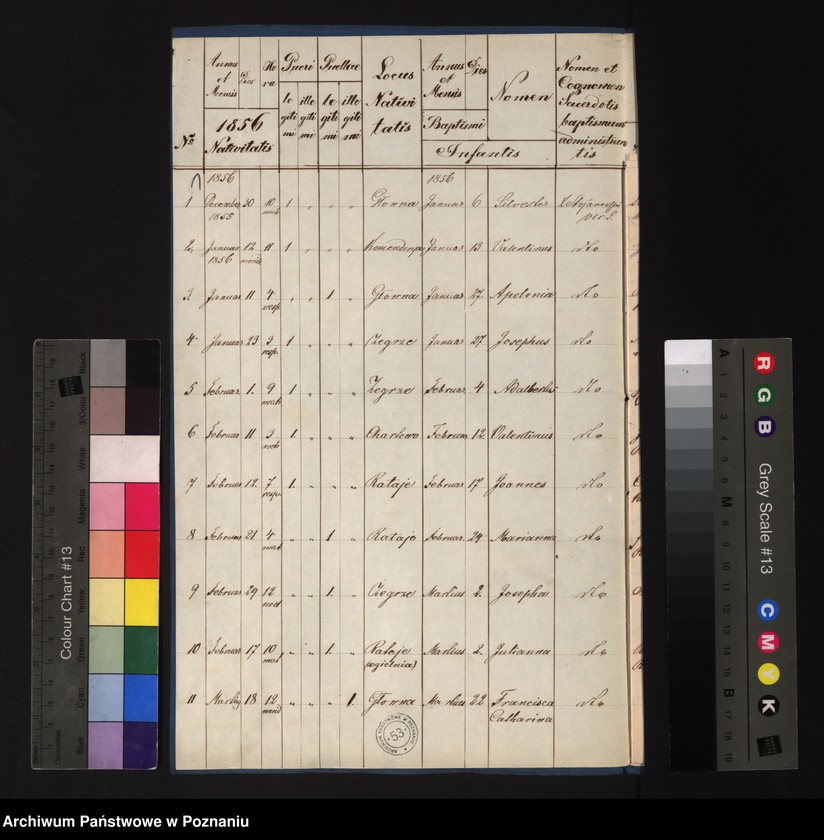 Annus et Mensis Dies Hora Pueri Puellae Locus Nativitatis Annus et Mensis Dies Nomen Nomen et Cognomen Sacerdotis baptismum administrantis
legitimi illegitimi legitimi illegitimi
Nr. 1856 Nativitatis Baptismi Infantis
1856 1856
1 December 30 10 noct 1 " " " Głowna Januar 6 Silvester
1855
2 Januar 12 11 1 " " " Januar 13 Valentinus dto
1856
3 Januar 11 4 vesp " " 1 " Głowna Januar 27 Apolonia dto
4 Januar 23 3 vesp 1 " " " Żegrze Januar 27 Josephus dto
5 Februar 1. 9 mat 1 " " " Żegrze Februar 4 Adalbertus dto
6 Februar 11 3 noct 1. " " " Chartowo Februar 12. Valentinus dto
7 Februar 12. 7 vesp. 1. " " " Rataje Februar 17 Joannes dto
8 Februar 21 4 mat " " 1 " Rataje Februar 24 Marianna dto
9 Februar 29 12 noct " " 1. " Żegrze Martius 2. Josepha dto
10 Februar 17 10 mat " " 1. " Rataje Martius 2. Julianna dto
11 18 12 " " " 1. Głowna Martius 22 Francisca dto
Catharina
ARCHIWUM PAŃSTWOWE W POZNANIU
53
Colour Chart #13
Black
3/Color
White
Magenta
Red
Yellow
Green
Cyan
Blue
Centimetres
Grey Scale #13
R
G
B
C
M
Y
K
A 1 2 3 4 5 6 M 8 9 10 11 12 13 14 15 B 17 18 19
Archiwum Państwowe w Poznaniu